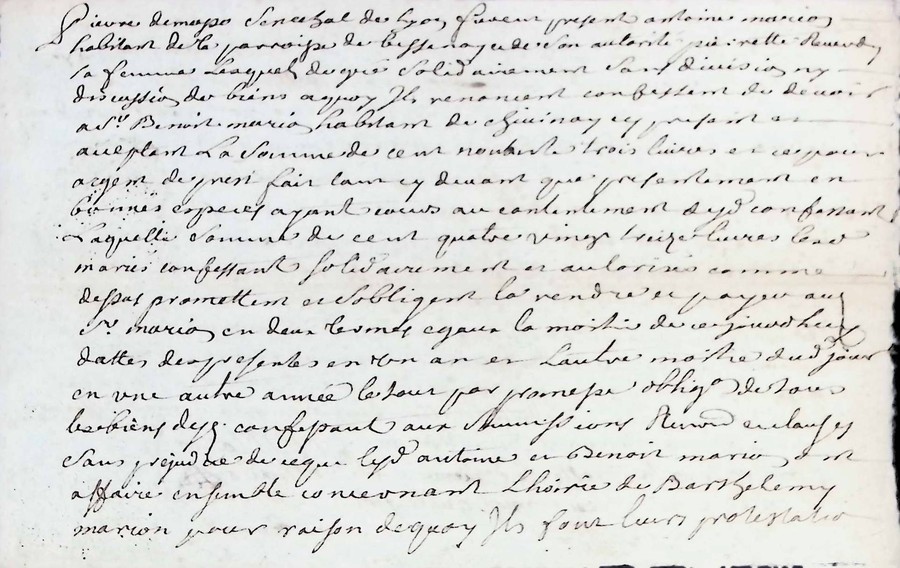 Pierre demapo Senechal de Lyon furent present antoine marion
habitant de la parroisse de bessenay & de son autorité pierrette
sa femme Lesquels de gré Solidairement Sans division ny
discussion de biens aquoy Ils renoncent confessent de devoir
a Sr. Benoit marion habitant de chevinay cy present et
aceptant La Somme de cent nonante trois livres et ce pour
argent de prest fait tant cy devant que presentement en
bonnes especes ayant cours au contentement desd. confessant
Laquelle Somme de cent quatre vingt treize livres lesd
mariés confessant solidairement et autorisée comme
dessus promettent et sobligent la rendre et payer aud
Sr. marion en deux termes egaux la moitié de ce jourdhuy
dattes des presentes en un an et Lautre moitié aud. jour
en une autre année le tout par promesse oblign. de tous
les biens desd. confessant aux Soumissions Renon et clauses
Sans prejudice de ce que lesd. antoine et Benoit marion ont
affaire ensemble concernant Lhoirie de Barthelemy
marion pour raison de quoy Ils font leurs protestatio